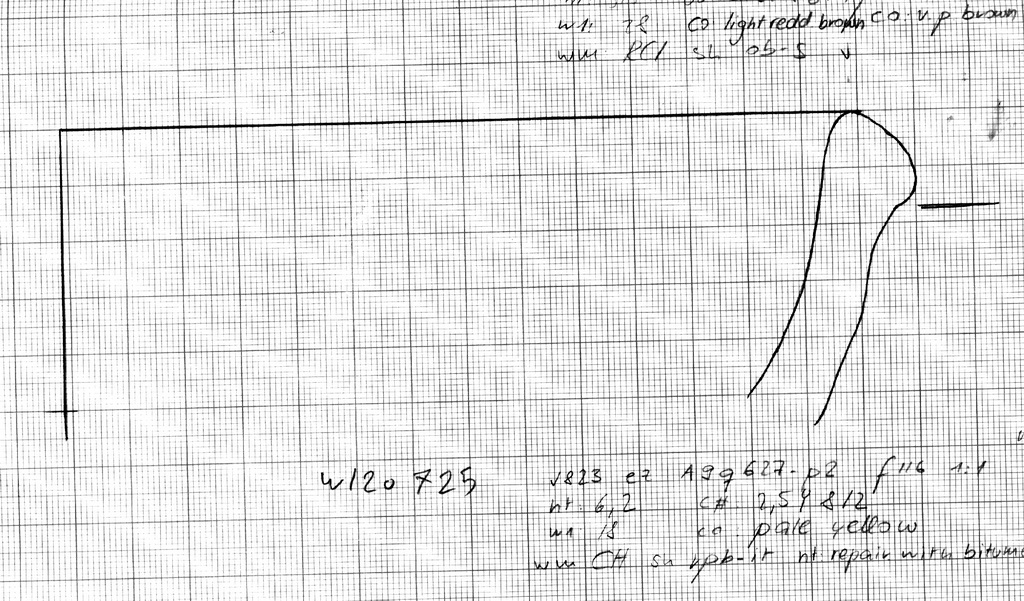 w1: 28 co light redd brown co: v.p brown
wm
w/20 725 v823 e2 Agg 627-p2 f 116 1:1
ht: 6,2 C#: 2,5Y 8/2
w1 18 co: pale yellow
wm CH sh vpb-it nt. repair with bitume